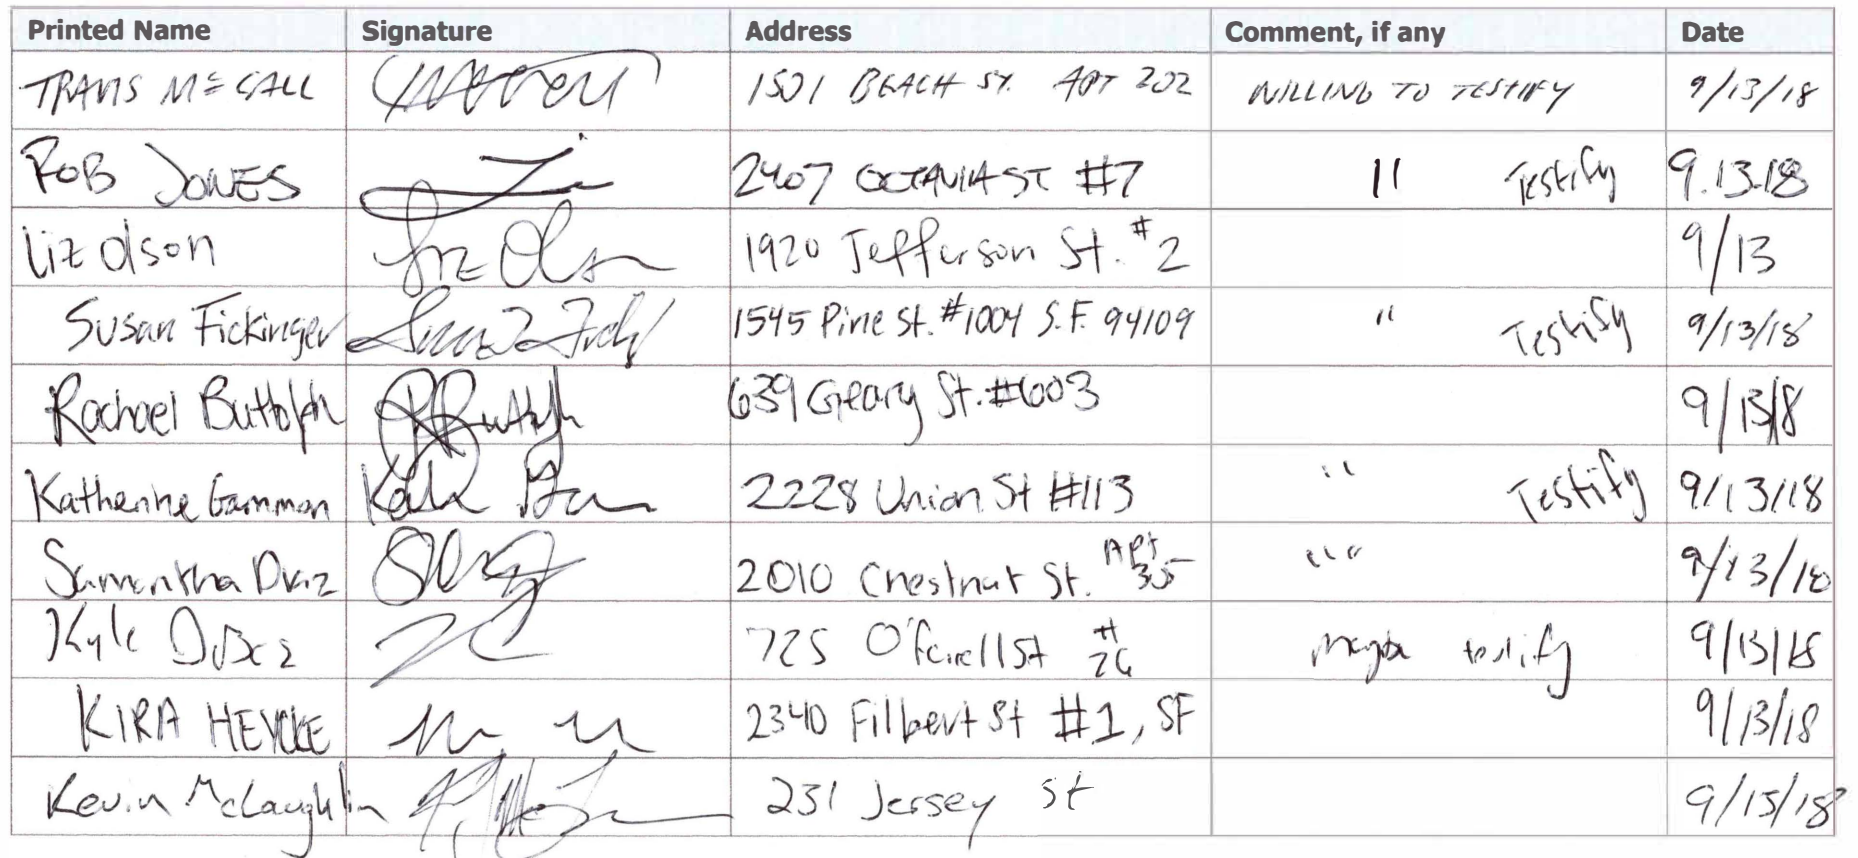 Printed Name Signature Address Comment, if any Date
TRAVIS McCALL 1501 BEACH ST. APT 202 WILLING TO TESTIFY 9/13/18
ROB JONES 2407 OCTAVIA ST #7 " Testify 9.13.18
Liz Olson Liz Olson 1920 Jefferson St. #2 9/13
Susan Fickinger 1545 Pine St. #1004 S.F. 94109 " Testify 9/13/18
Rachael Buttolph R Buttolph 639 Geary St. #603 9/13/18
Katherine Gammon 2228 Union St #113 " Testify 9/13/18
Samantha 2010 Chestnut St. Apt 35 " " 9/13/18
Kyle 725 O'farell St # 26 maybe testify 9/13/18
KIRA HEYCKE 2340 Filbert St #1, SF 9/13/18
Kevin McLaughlin 231 Jersey St 9/15/18